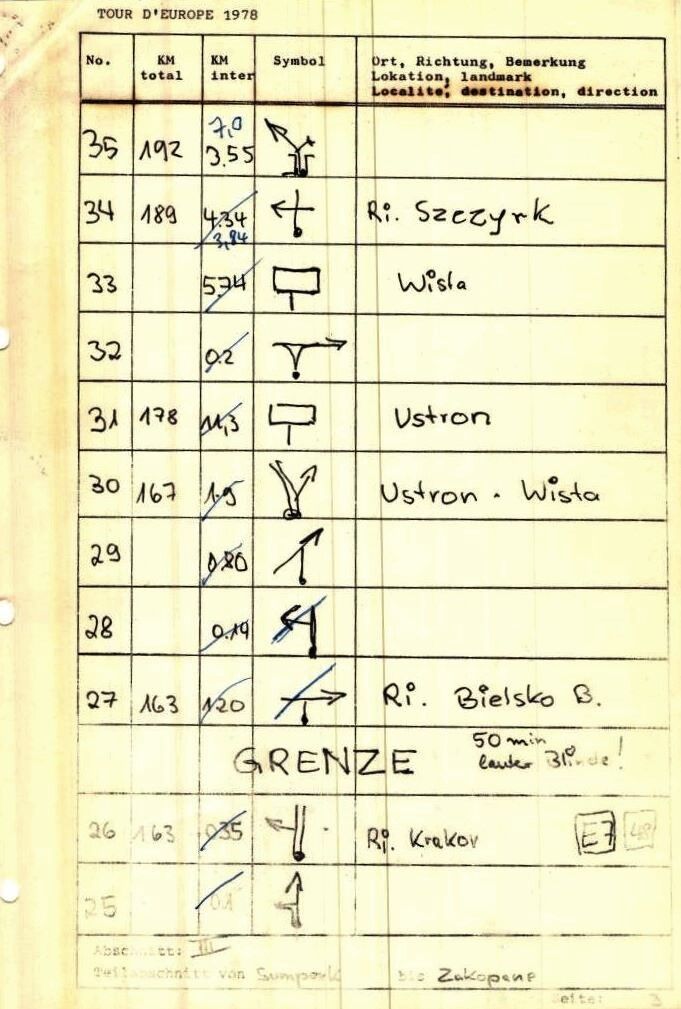 TOUR D'EUROPE 1978
No. KM total KM inter Symbol Ort, Richtung, Bemerkung
Lokation, landmark
Localité, destination, direction
7,0
35 192 3.55
34 189 4.34 Ri. Szczyrk
3,84
33 5.74 Wisła
32 0.2
31 178 11,3 Ustron
30 167 1.5 Ustron - Wista
29 0.80
28 0.14
27 163 1.20 Ri. Bielsko B.
GRENZE 50 min
lauter Blinde!
26 163 0.35 Ri. Krakov E7 48
25 0.1
Abschnitt: III
Teilabschnitt von Sumperk bis Zakopane
Seite: 3